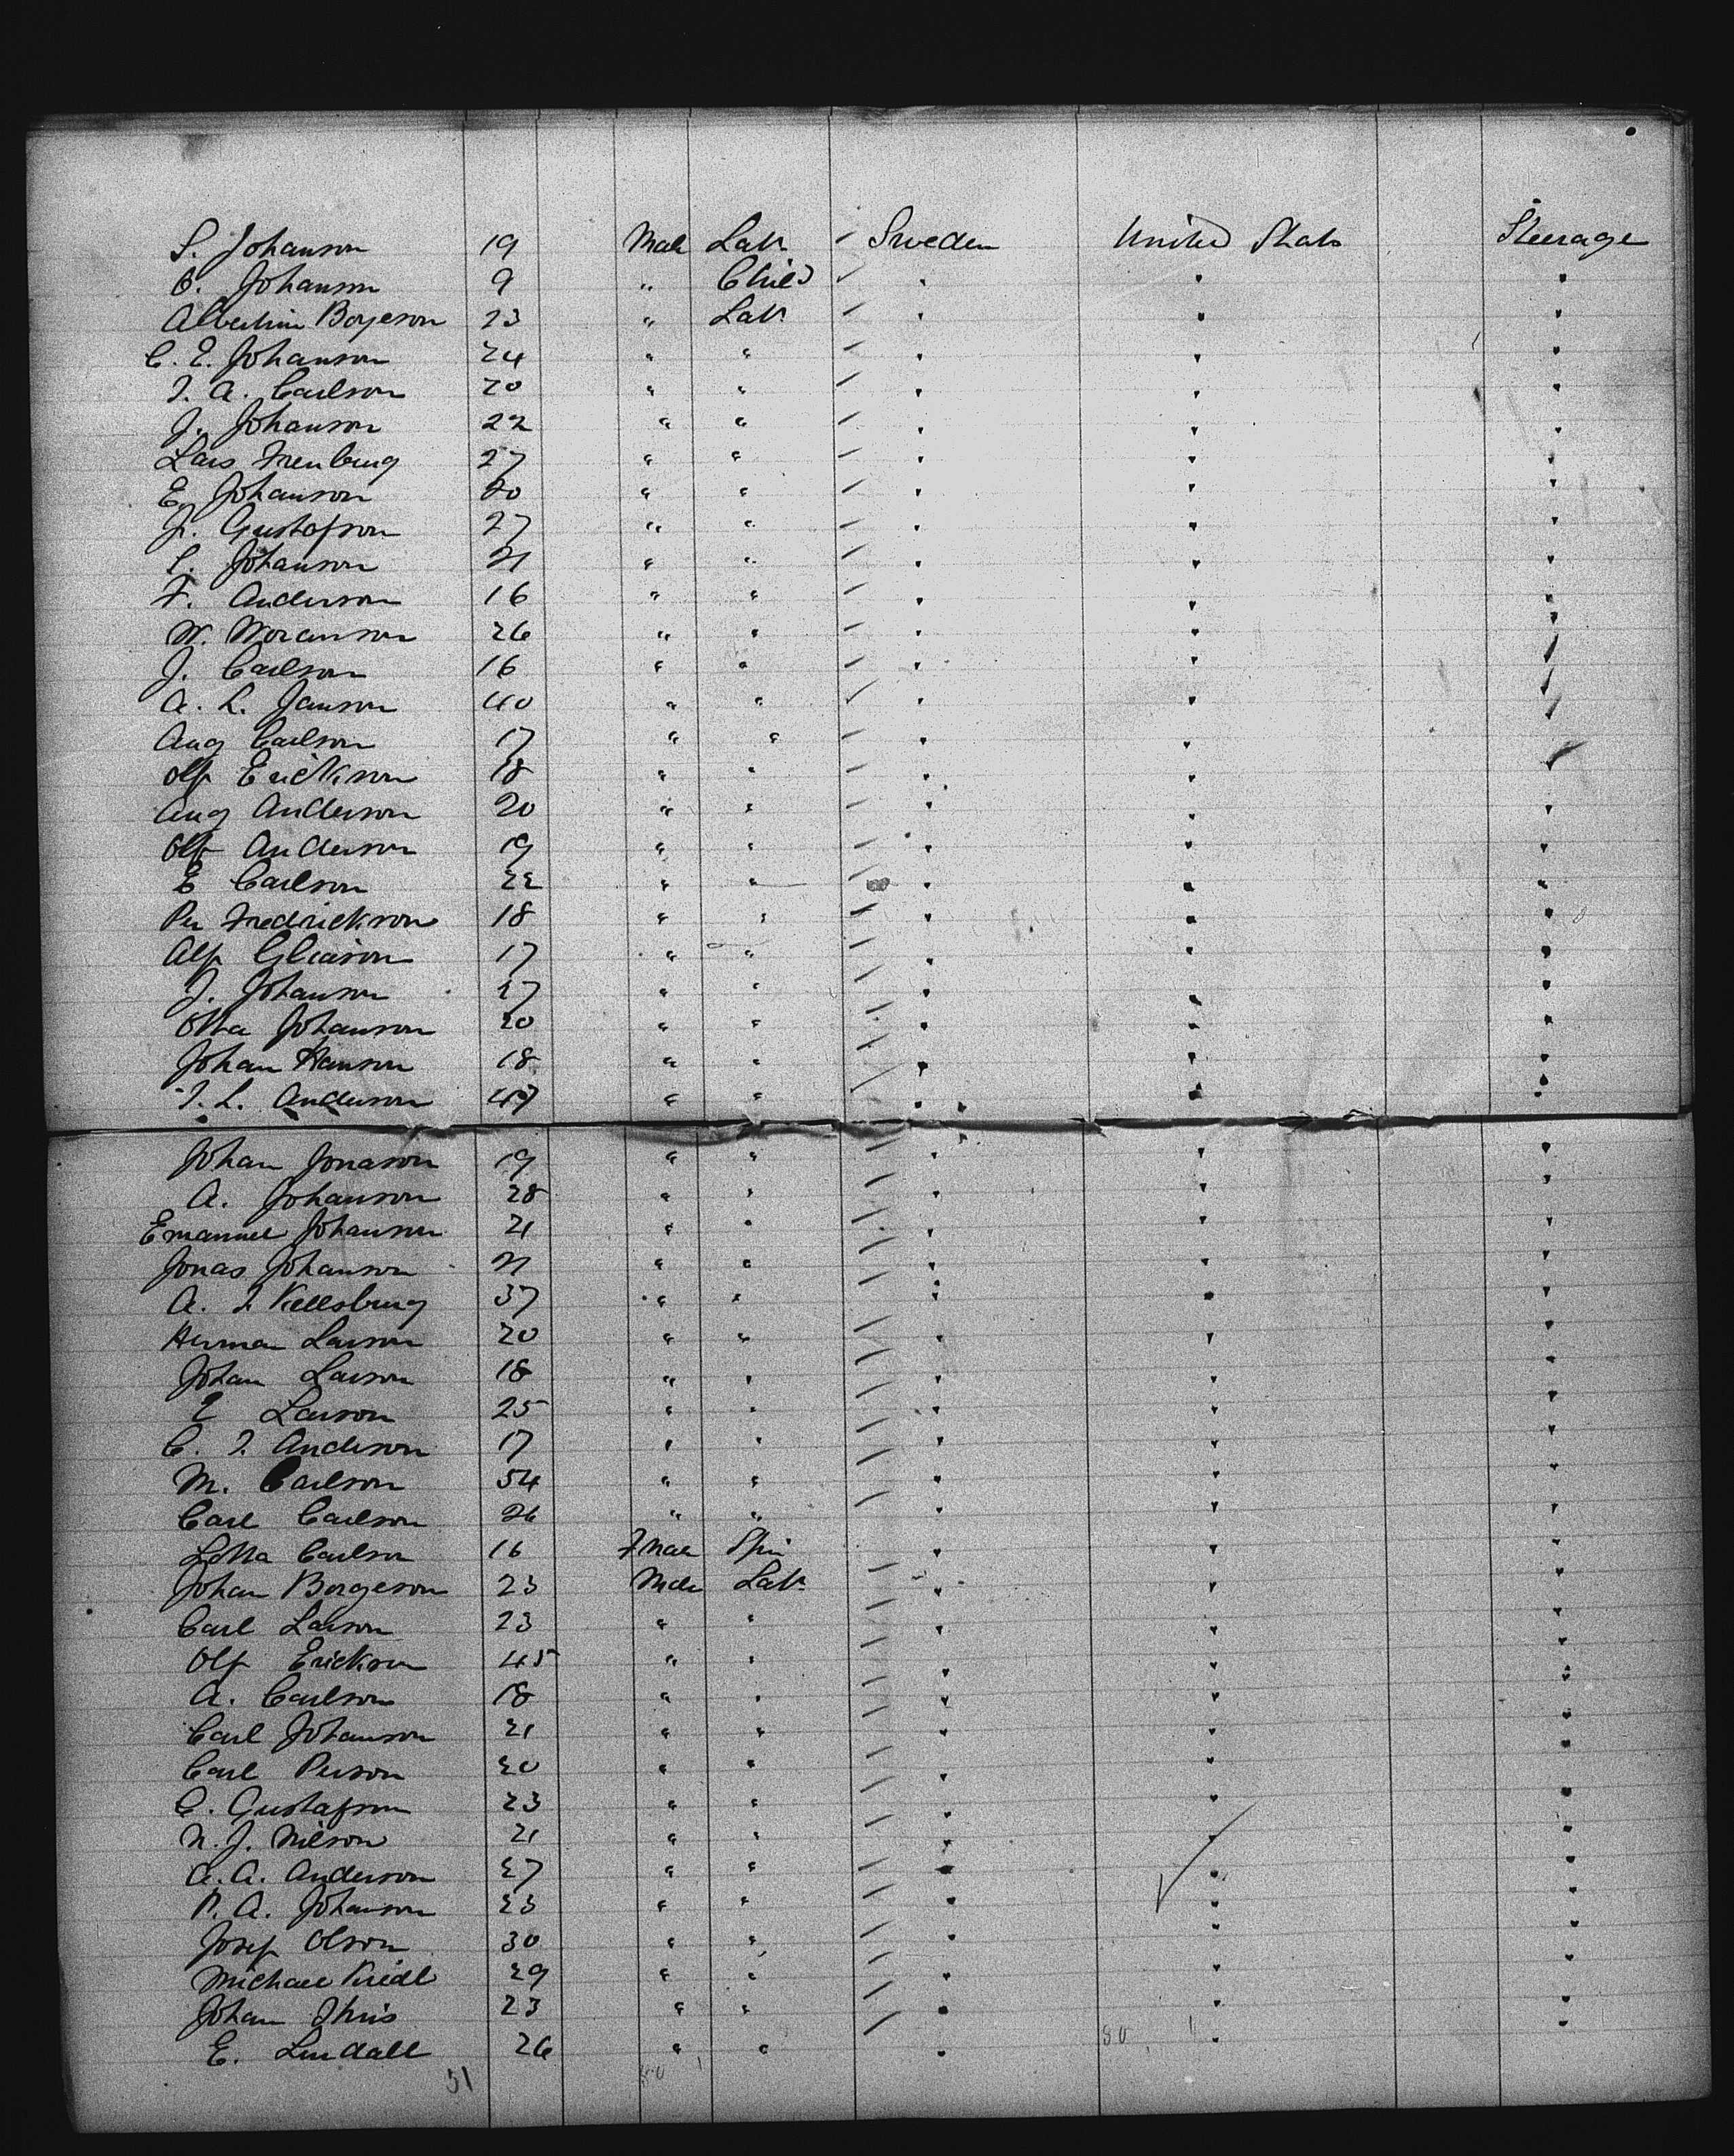 S. Johanson 19 Male Labr Sweden United States Steerage
O. Johanson 9 " Child " " "
Albertine Borjeson 23 " Labr " " "
C. E. Johanson 24 " " " " "
J. A. Carlson 20 " " " " "
J. Johanson 22 " " " " "
Lars 27 " " " " "
E. Johanson 20 " " " " "
J. Gustafson 27 " " " " "
Johanson 21 " " " " "
F. Anderson 16 " " " " "
W. 26 " " " " "
J. Carlson 16 " " " " "
A. L. Janson 40 " " " " "
Aug Carlson 17 " " " " "
Olf Erickson 18 " " " " "
Aug Anderson 20 " " " " "
Olf Anderson 19 " " " " "
E Carlson 22 " " " " "
Per Fredrickson 18 " " " " "
Alf 17 " " " " "
J. Johanson 27 " " " " "
Otta Johanson 20 " " " " "
Johan Hanson 18 " " " " "
J. L. Anderson " " " " "
Johan Jonason 19 " " " " "
A. Johanson 28 " " " " "
Emanuel Johanson 21 " " " " "
Jonas Johanson 21 " " " " "
A. 37 " " " " "
Herman Larson 20 " " " " "
Johan Larson 18 " " " " "
E Larson 25 " " " " "
C. J. Anderson 17 " " " " "
M. Carlson 54 " " " " "
Carl Carlson 26 " " " " "
Lotta Carlson 16 Fmale Spin " " "
Johan Borgeson 23 Male Labr " " "
Carl Larson 23 " " " " "
Olf Erickson 45 " " " " "
A. Carlson 18 " " " " "
Carl Johanson 21 " " " " "
Carl Person 20 " " " " "
C. Gustafson 23 " " " " "
N. J. Nilson 21 " " " " "
A. A. Anderson 27 " " " " "
P. A. Johanson 23 " " " " "
Josef Olson 30 " " " " "
Michael 29 " " " " "
Johan 23 " " " " "
E. Lindall 26 " " " " "
51 50 1 50 1